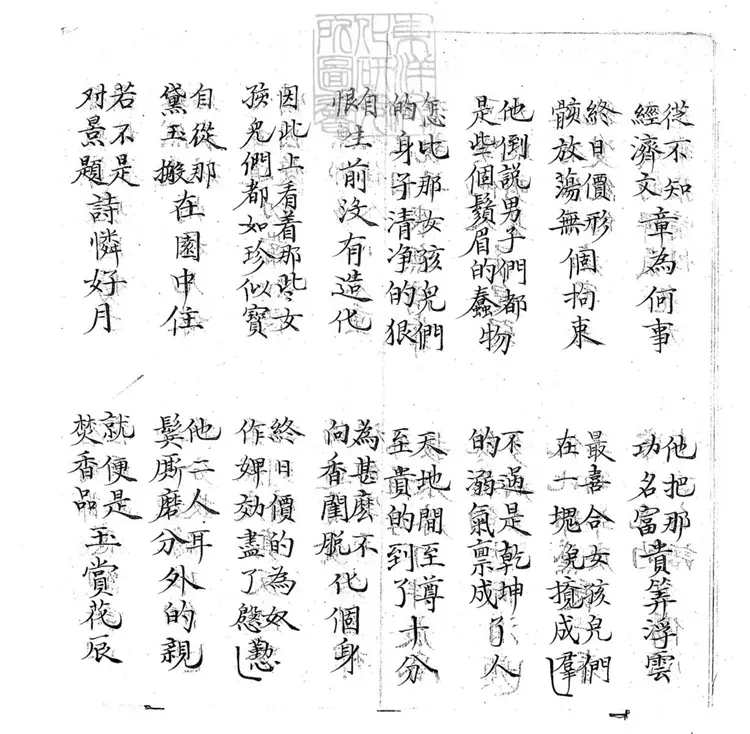 東洋文
化研究
所圖書
從不知經濟文章為何事
他把那功名富貴筭浮雲
終日價形骸放蕩無個拘束
最喜合女孩兒們在一塊兒攪成羣
他倒說男子們都是些個鬚眉的蠢物
不過是乾坤的溺氣禀成了人
怎比那女孩兒們的身子清净的狠
天地間至尊至貴的到了十分
自恨生前没有造化
為甚麽不向香閨脱化個身
因此上看着那些女孩兒們都如珍似寳
終日價的為奴作婢効盡了慇懃
自從那黛玉搬在園中住
他二人耳鬓厮磨分外的親
若不是对景題詩憐好月
就便是焚香品玉賞花辰